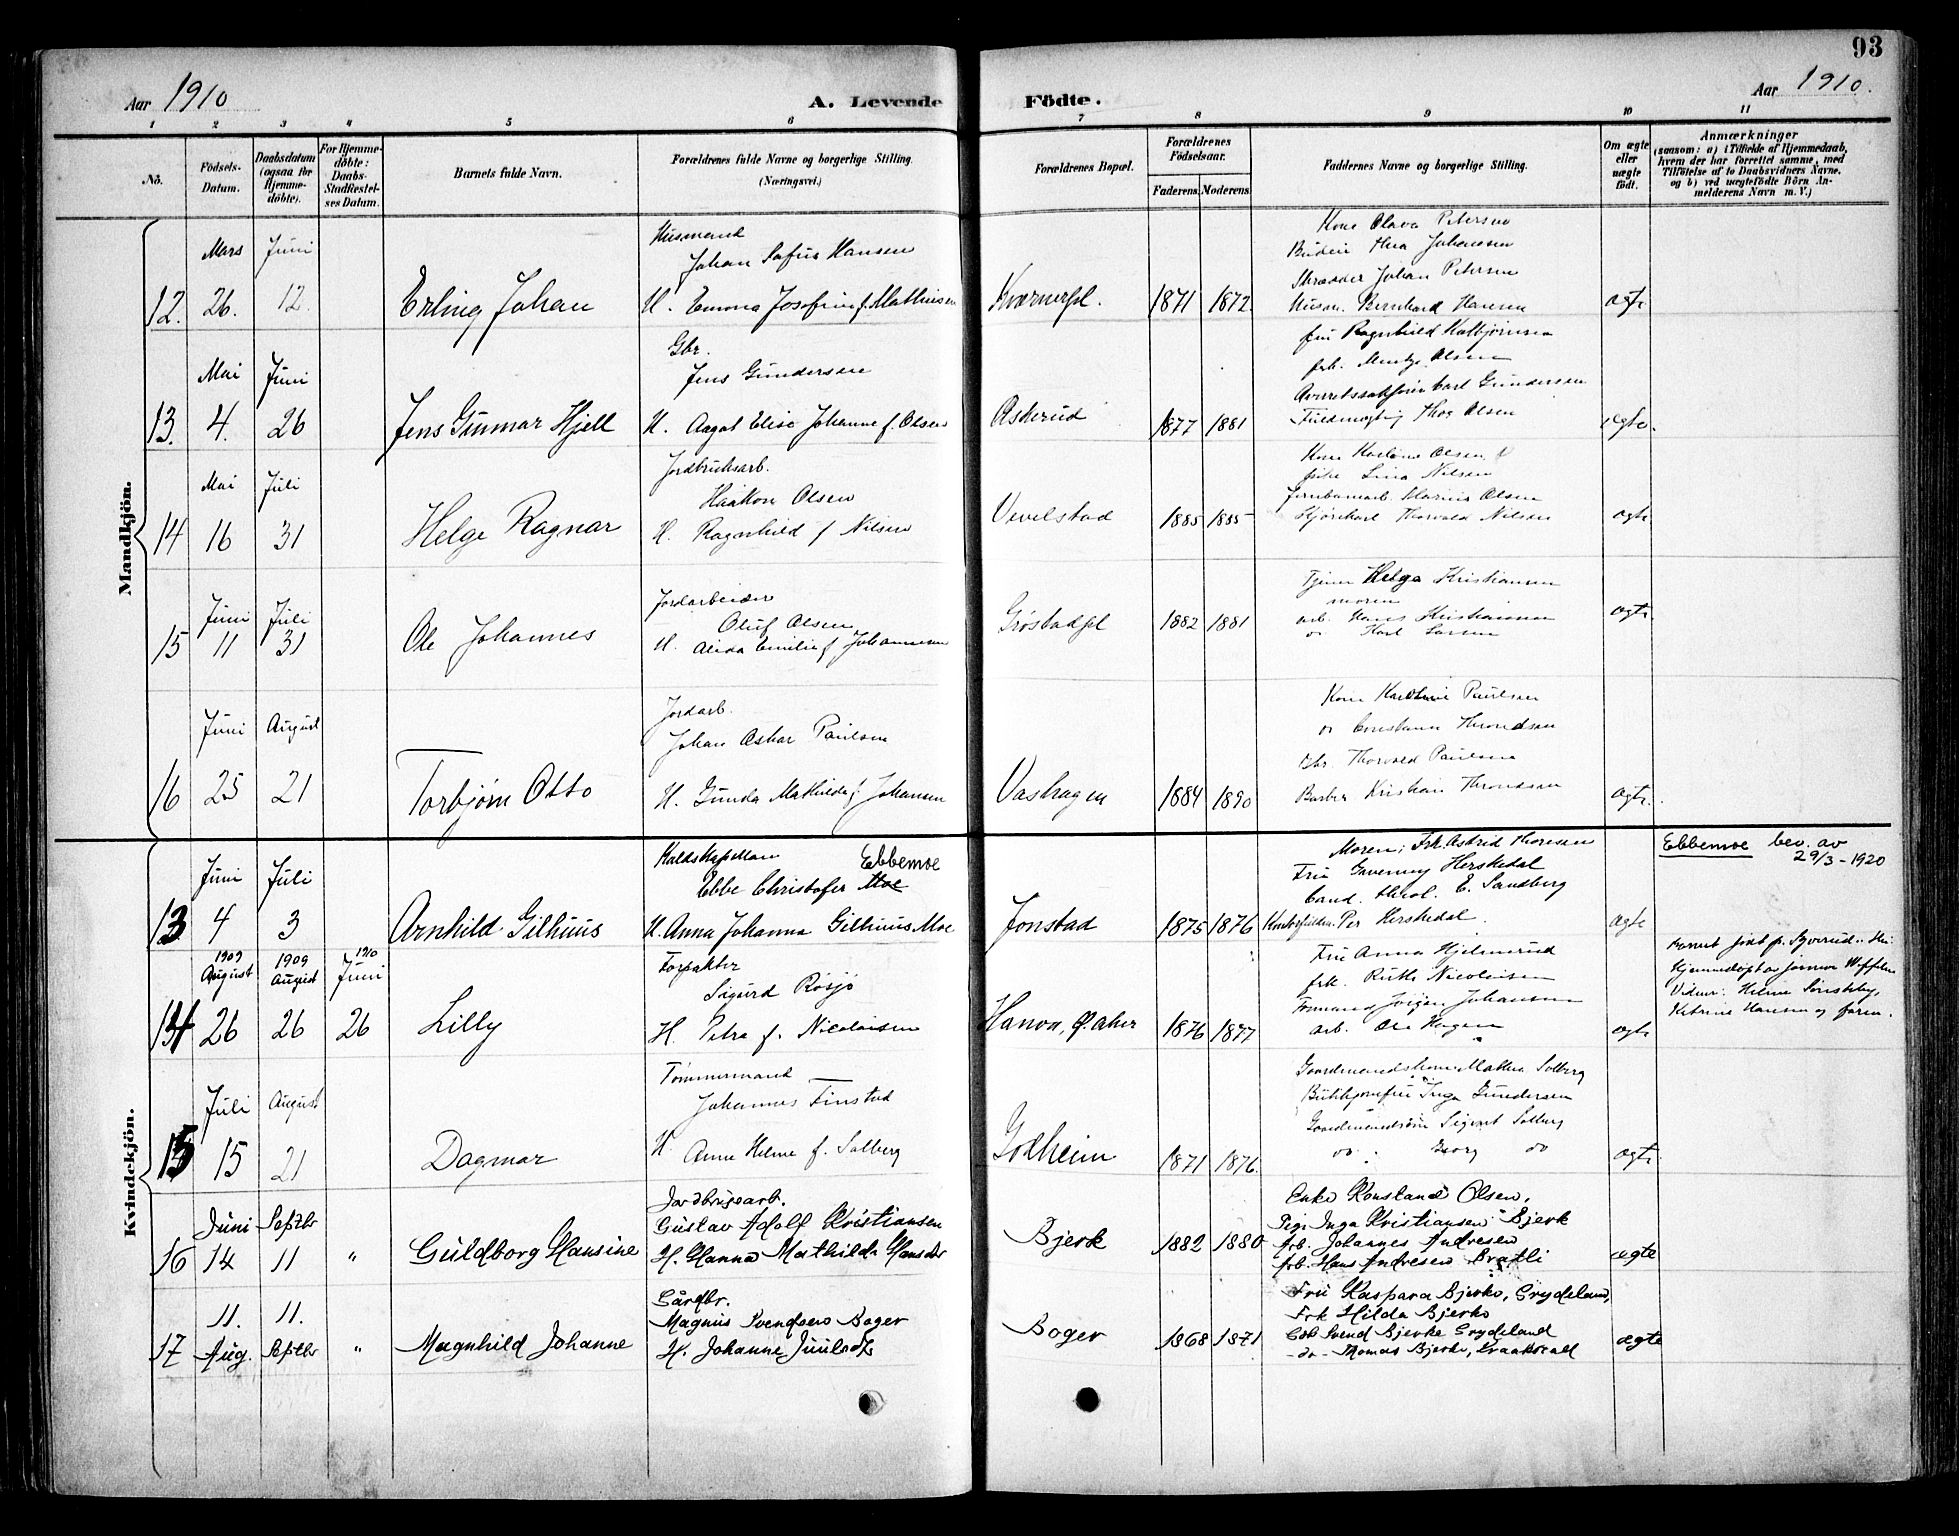 93
Aar 1910
A. Levende Födte.
Aar 1910.
1 2 3 4 5 6 7 8 9 10 11
No.
Födsels-
Datum.
Daabsdatum
(ogsaa for
Hjemme-
döbte).
For Hjemme-
döbte:
Daabs-
Stadfæstel-
ses Datum.
Barnets fulde Navn.
Forældrenes fulde Navne og borgerlige Stilling.
(Næringsvei.)
Forældrenes Bopæl.
Forældrenes
Födselsaar.
Faderens. Moderens.
Faddernes Navne og borgerlige Stilling.
Om ægte
eller
uægte
født.
Anmærkninger
(saasom: a) i Tilfælde af Hjemmedaab,
hvem der har forrettet samme, med
Tilföielse af to Daabsvidners Navne,
og b) ved uægtefödte Börn An-
melderens Navn m. V.)
Mandkjön.
12. Mars 26. Juni 12. Erling Johan
Husmand
Johan Sofus Hansen
H. Emma Josefine f. Mathisen
Kværnerpl. 1871 1872.
Kone Olava Petersen
Johansen
Skrædder Johan Petersen
Husm. Bernhard Hansen
ægte
13. Mai 4. Juni 26 Jens Gunnar Hjell
Gbr.
Jens Gundersen
H. Aagot Elise Johanne f. Olsen
Askerud 1877 1881
Fru Ragnhild
frk. Olsen
Carl Gundersen
Fuldmægtig Thor Olsen
ægte.
14 Mai 16 Juli 31 Helge Ragnar
Jordbruksarb.
Haakon Olsen
H. Ragnhild f Nilsen
Vevelstad 1885 1885
Kone Olsen
Lina Nilsen
Jernbanearb. Marius Olsen
Thorvald Nilsen
ægte
15 Juni 11 Juli 31 Ole Johannes
Jordarbeider
Oluf Olsen
H. Alida Emilie f Johannesen
Grøstadpl 1882 1881
Helga Kristiansen
moren
arb. Hans Kristiansen
do Karl Larsen
ægte
16 Juni 25 August 21 Torbjørn Otto
Jordarb.
Johan Oskar Paulsen
H. Gunda Mathilde f Johansen
Vashagen 1884 1890
Kone Paulsen
do Constance Throndsen
Gbr. Thorvald Paulsen
Barber Kristian Throndsen
ægte.
Kvindekjön.
13 Juni 4 Juli 3 Arnhild Gilhuus
Kaldskapellan Ebbemoe
Ebbe Christofer Moe
H. Anna Johanna Gilhuus Moe
Jonstad 1875 1876
Moren; Frk. Astrid Thoresen
Fru Herstedal
Cand. theol. E. Sandberg
Per Herstedal.
ægte
Ebbemoe bev. av
29/3-1920
14 1909 August 26 1909 August 26 1910 Juni 26 Lilly
Forpakter
Sigurd Røsjø
H. Petra f. Nicolaisen
1876 1877
Fru Anna Hjelmerud
frk. Ruth Nicolaisen
Formand Jørgen Johansen
arb. Ole Hagen
ægte
Barnet født p. Syverud
Hjemmedøpt av jormor
Vidner: Helene Sønsteby,
Katrine Hansen og faren.
15 Juli 15 August 21 Dagmar
Tømmermand
Johannes Finstad
H Anne Helene f. Solberg
Solheim 1871 1876.
Gaardmandskone Mathea Solberg
Inga Gundersen
Gaardmandssøn Sigurd Solberg
do Georg do
ægte
16 Juni 14 Septbr 11 " Guldborg Hansine
Jordbrugsarb.
Gustav Adolf Kristiansen
H. Hanna Mathilde Hansdtr
Bjerk 1882 1880
Enke Konstance Olsen,
Pige Inga Kristiansen Bjerk
Arb. Johannes Andresen
Arb. Hans Andresen Bratli
ægte
17 11. Aug. 11. Septbr " Magnhild Johanne
Gårdbr.
Magnus Svendsen Boger
H. Johanne Juulsdtr
Boger 1868 1871
Fru Kaspara Bjerke, Grydeland,
Frk Hilda Bjerke
Gbr Svend Bjerke Grydeland
- do - Thomas Bjerke,
ægte